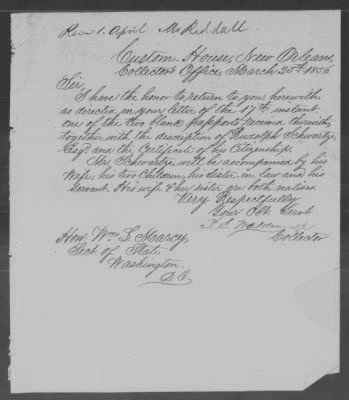 Recd 1. April Mr Reddall
Custom-House, New Orleans,
Collector's Office, March 25th 1856
Sir,
I have the honor to return to you herewith
as directed in your letter of the 17th instant
one of the two blank passports received therewith,
together with the description of Rudolph Schwartze
Esqr. and the Certificate of his Citizenship.
Mr. Schwartze will be accompanied by his
Wife, his two Children, his sister in law and his
Servant. His wife & her sister are both natives.
Very Respectfully
Your Obt Servt
Collector
Hon. Wm. L. Marcy,
Sect. of State
Washington.
D.C.